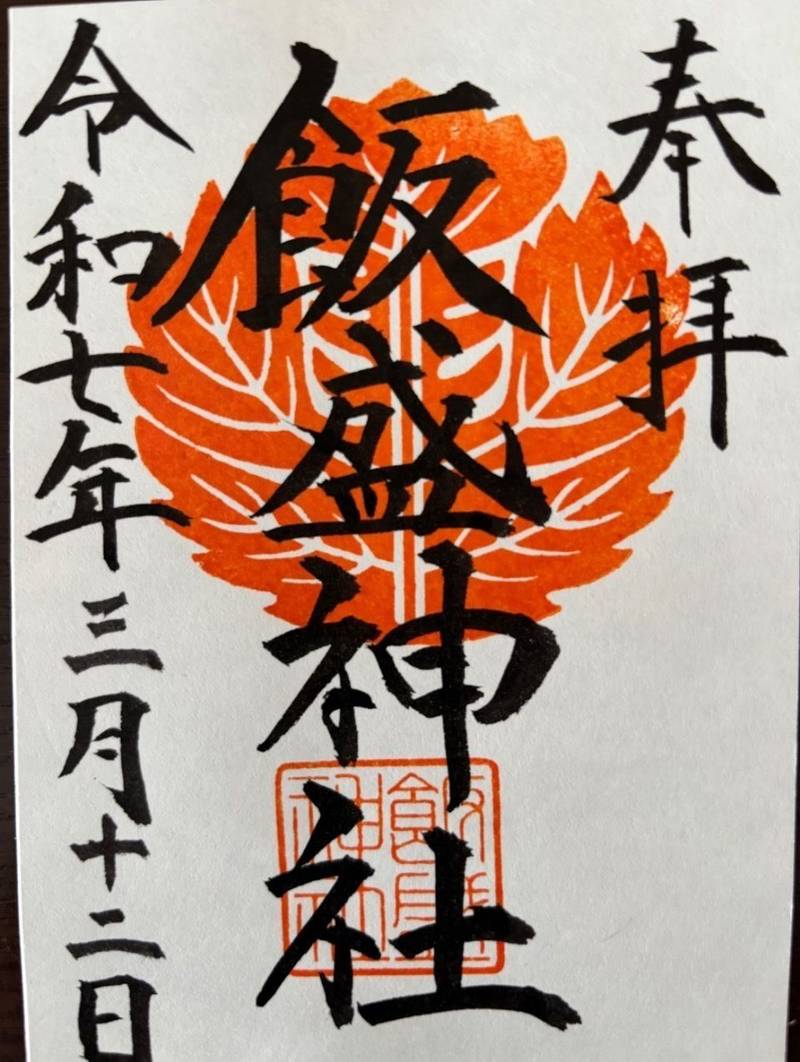 奉拝
飯盛神社
令和七年三月十二日
飯盛
神社